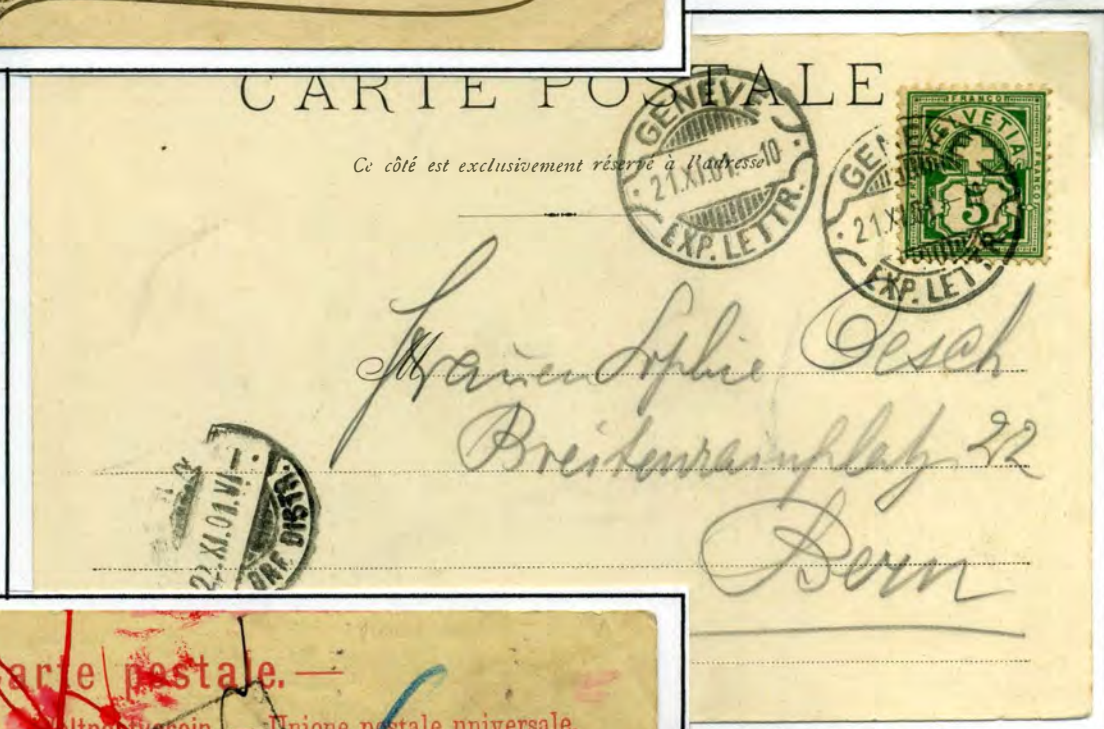 CARTE POSTALE
Ce côté est exclusivement réservé à l'adresse
GENÈVE
21.XI.01.-10
EXP. LETTR.
GEN
21.XI.01.-10
EXP. LETTR.
FRANCO
HELVETIA
FRANCO
5
M
Frauen Sophie Oesch
Breitenrainplatz 22
Bern
22.XI.01.VI-
BRF. DISTR.
arte postale.—
Weltpostverein Unione postale universale.